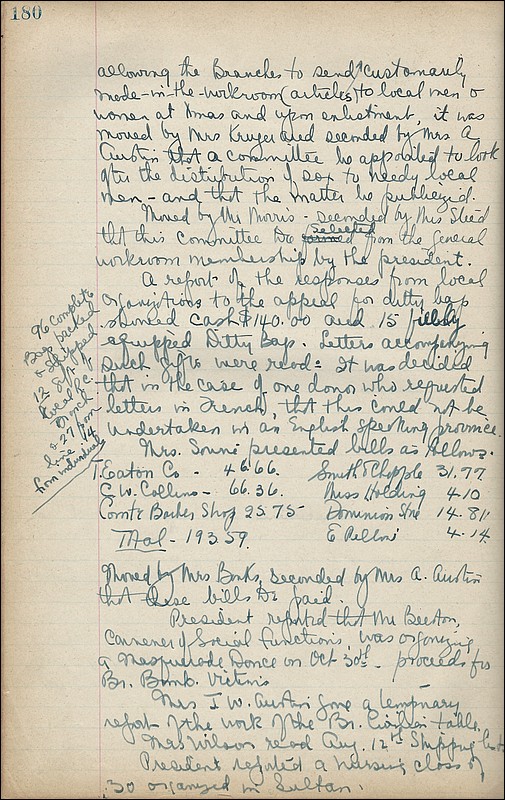 180
allowing the Branches to send customarily
made-in-the-workroom (articles) to local men &
women at Xmas and upon enlistment, it was
moved by Mrs Kruger and seconded by Mrs A
Austin that a committee be appointed to look
after the distribution of sox to needy local
men - and that the matter be publicized.
Moved by Mrs Morris - seconded by Mrs Sleed
that this committee be selected from the general
workroom membership by the president.
A report of the responses from local
organizations to the appeal for ditty bags
showed cash $140.00 and 15 fully
equipped Ditty Bags. Letters accompanying
such gifts were read. It was decided
that in the case of one donor who requested
letters in French, that this could not be
undertaken in an English speaking province.
96 Complete
Bags packed
& shipped
12 gift of
Local R.C.
branch
& 27 from
line 14
from individuals
Mrs. presented bills as follows.
T. Eaton Co - 46.66. Smith & Chapple 31.77
G. W. Collins - 66.36. Miss Holding 4.10
Comt's Barber Shop 25.75 Dominion Stre 14.81
Total - 193.59. E Pelloni 4.14
Moved by Mrs Bonks, seconded by Mrs A. Austin
that these bills be paid.
President reported that Mrs Beeton,
convener of Social Functions, was organizing
a Masquerade Dance on Oct 30th - proceeds for
Br. Bomb. Victims
Mrs J. W. Austin gave a temporary
report of the work of the Br. Civilian table.
Mrs Wilson read Aug. 12th Shipping List
President reported a nursing class of
30 organized in Sultan.